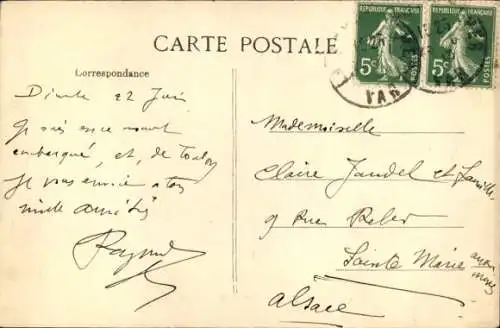 CARTE POSTALE
REPUBLIQUE FRANÇAISE
5c POSTES
REPUBLIQUE FRANÇAISE
5c POSTES
VAR
Correspondance
22 Juin
Je suis en ce moment
embarqué, et, de Toulon
je vous envoie à tous
mille amitiés
Raymond
Mademoiselle
Claire Jandel et famille
9 Rue Reber
Sainte Marie aux
mines
Alsace